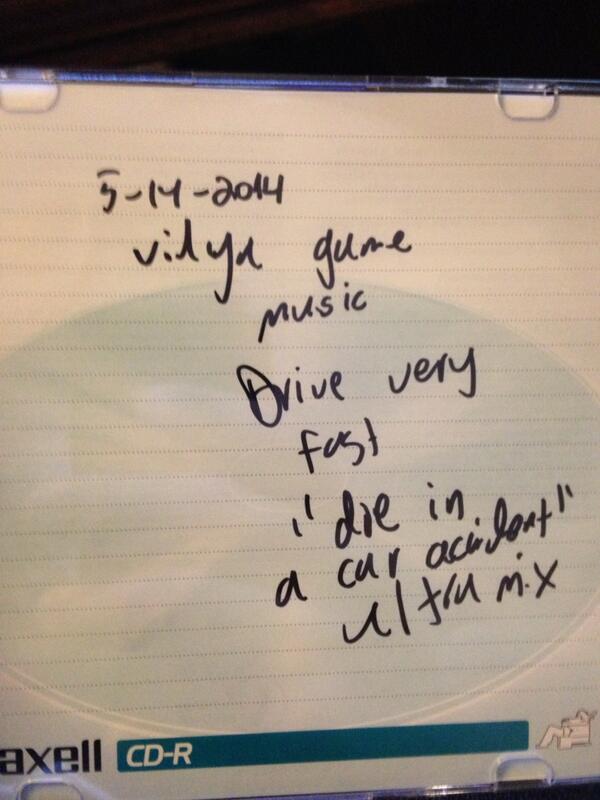 5-14-2014
vidya game
music
Drive very
fast
"die in
a car accident"
ultra mix
axell CD-R